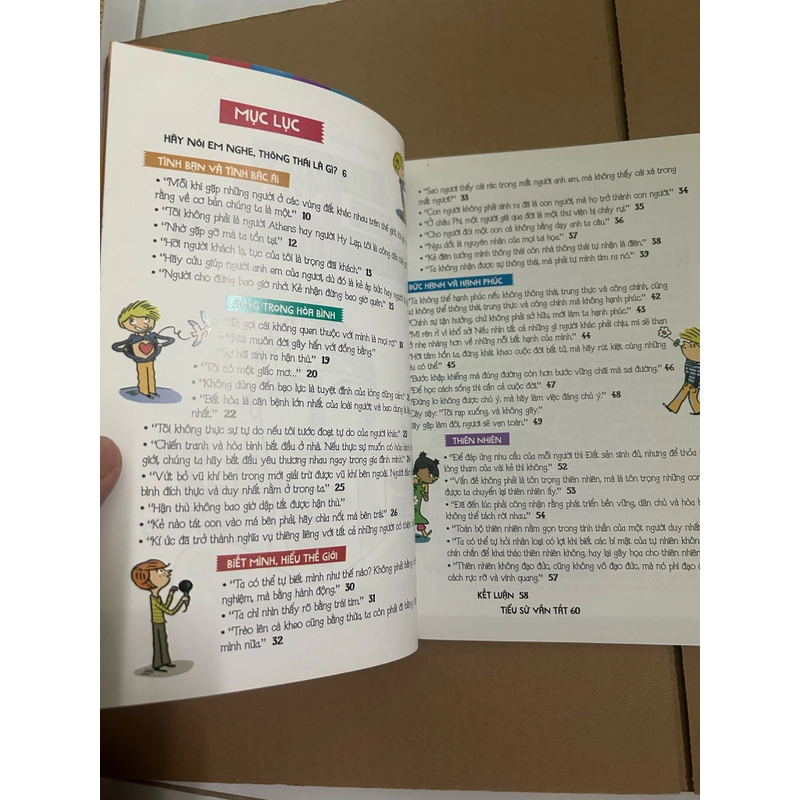 MỤC LỤC
HÃY NÓI EM NGHE, THÔNG THÁI LÀ GÌ? 6
TÌNH BẠN VÀ TÌNH BÁC ÁI
• "Mỗi khi gặp những người ở các vùng đất khác nhau trên thế giới,
rằng về cơ bản chúng ta là một." 10
• "Tôi không phải là người Athens hay người Hy Lạp, tôi là công dân thế
• "Nhờ gặp gỡ mà ta tồn tại." 12
• "Hỡi người khách lạ, tục của tôi là trọng đãi khách." 13
• "Hãy cứu giúp người anh em của ngươi, dù đó là kẻ áp bức hay người
• "Người cho đừng bao giờ nhớ. Kẻ nhận đừng bao giờ quên." 15
TRONG HÒA BÌNH
• "Ta gọi cái không quen thuộc với mình là mọi rợ."
• "Núi muốn đời gây hấn với đồng bằng."
"Sợ hãi sinh ra hận thù." 19
• "Tôi có một giấc mơ..." 20
• "Không dùng đến bạo lực là tuyệt đỉnh của lòng dũng cảm."
• "Bất hòa là căn bệnh lớn nhất của loài người và bao dung là
nhất." 22
• "Tôi không thực sự tự do nếu tôi tước đoạt tự do của người khác."
• "Chiến tranh và hòa bình bắt đầu ở nhà. Nếu thực sự muốn có hòa bình
giới, chúng ta hãy bắt đầu yêu thương nhau ngay trong gia đình mình."
• "Vứt bỏ vũ khí bên trong mới giải trừ được vũ khí bên ngoài. Người
bình đích thực và duy nhất nằm ở trong ta." 25
• "Hận thù không bao giờ dập tắt được hận thù."
• "Kẻ nào tát con vào má bên phải, hãy chìa nốt má bên trái." 26
• "Kí ức đã trở thành nghĩa vụ thiêng liêng với tất cả những người có
BIẾT MÌNH, HIỂU THẾ GIỚI
• "Ta có thể tự biết mình như thế nào? Không phải bằng
nghiệm, mà bằng hành động." 30
• "Ta chỉ nhìn thấy rõ bằng trái tim." 31
• "Trèo lên cà kheo cũng bằng thừa, ta còn phải đi bằng
mình nữa." 32
• "Sao ngươi thấy cái rác trong mắt người anh em, mà không thấy cái xà trong
mắt ngươi?" 33
• "Con người không phải sinh ra đã là con người, mà họ trở thành con người." 34
• "Ở châu Phi, một người già qua đời là một thư viện bị cháy rụi." 35
• "Cho người đói một con cá không bằng dạy anh ta câu." 36
• "Ngu dốt là nguyên nhân của mọi tai họa." 37
• "Kẻ điên tưởng mình thông thái còn nhà thông thái tự nhận là điên." 38
• "Ta không nhận được sự thông thái, mà phải tự mình tìm ra nó." 39
ĐỨC HẠNH VÀ HẠNH PHÚC
"Ta không thể hạnh phúc nếu không thông thái, trung thực và công chính, cũng
không thể thông thái, trung thực và công chính mà không hạnh phúc." 42
"Chính sự tận hưởng, chứ không phải sở hữu, mới làm ta hạnh phúc." 43
"Mi rên rỉ vì khổ sở! Nếu nhìn tất cả những gì người khác phải chịu, mi sẽ than
ở nhẹ nhàng hơn về những nỗi bất hạnh của mình." 44
"Hỡi tâm hồn ta, đừng khát khao cuộc đời bất tử, mà hãy rút kiệt cùng những
có thể." 45
"Bước khập khiễng mà đúng đường còn hơn bước vững chãi mà sai đường." 46
"Để học cách sống thì cần cả cuộc đời." 47
"Đừng lo không được chú ý, mà hãy làm việc đáng chú ý." 48
"Cây sậy: "Tôi rạp xuống, và không gãy."
gặp lành, đời ngươi sẽ vẹn toàn." 49
THIÊN NHIÊN
• "Để đáp ứng nhu cầu của mỗi người thì Đất sản sinh đủ, nhưng để thỏa
lòng tham của vài kẻ thì không." 52
• "Vấn đề không phải là tôn trọng thiên nhiên, mà là tôn trọng những con
được ta chuyển lại thiên nhiên ấy." 53
• "Đã đến lúc phải công nhận rằng phát triển bền vững, dân chủ và hòa
không thể tách rời nhau." 54
• "Toàn bộ thiên nhiên nằm gọn trong tinh thần của một người duy nhất
• "Ta có thể tự hỏi nhân loại có lợi khi biết các bí mật của tự nhiên không
chín chắn để khai thác thiên nhiên không, hay lại gây họa cho thiên nhiên
• "Thiên nhiên không đạo đức, cũng không vô đạo đức, mà nó phi đạo
cách rực rỡ và vinh quang." 57
KẾT LUẬN 58
TIỂU SỬ VẮN TẮT 60